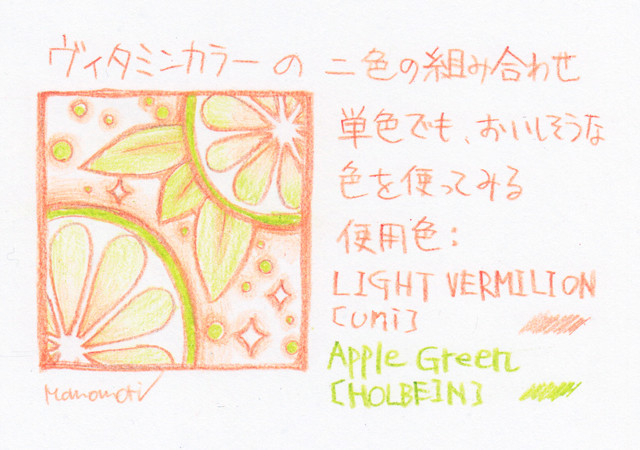 ヴィタミンカラーの 二色の組み合わせ
単色でも、おいしそうな
色を使ってみる
使用色:
LIGHT VERMILION
[uni]
Apple Green
[HOLBEIN]